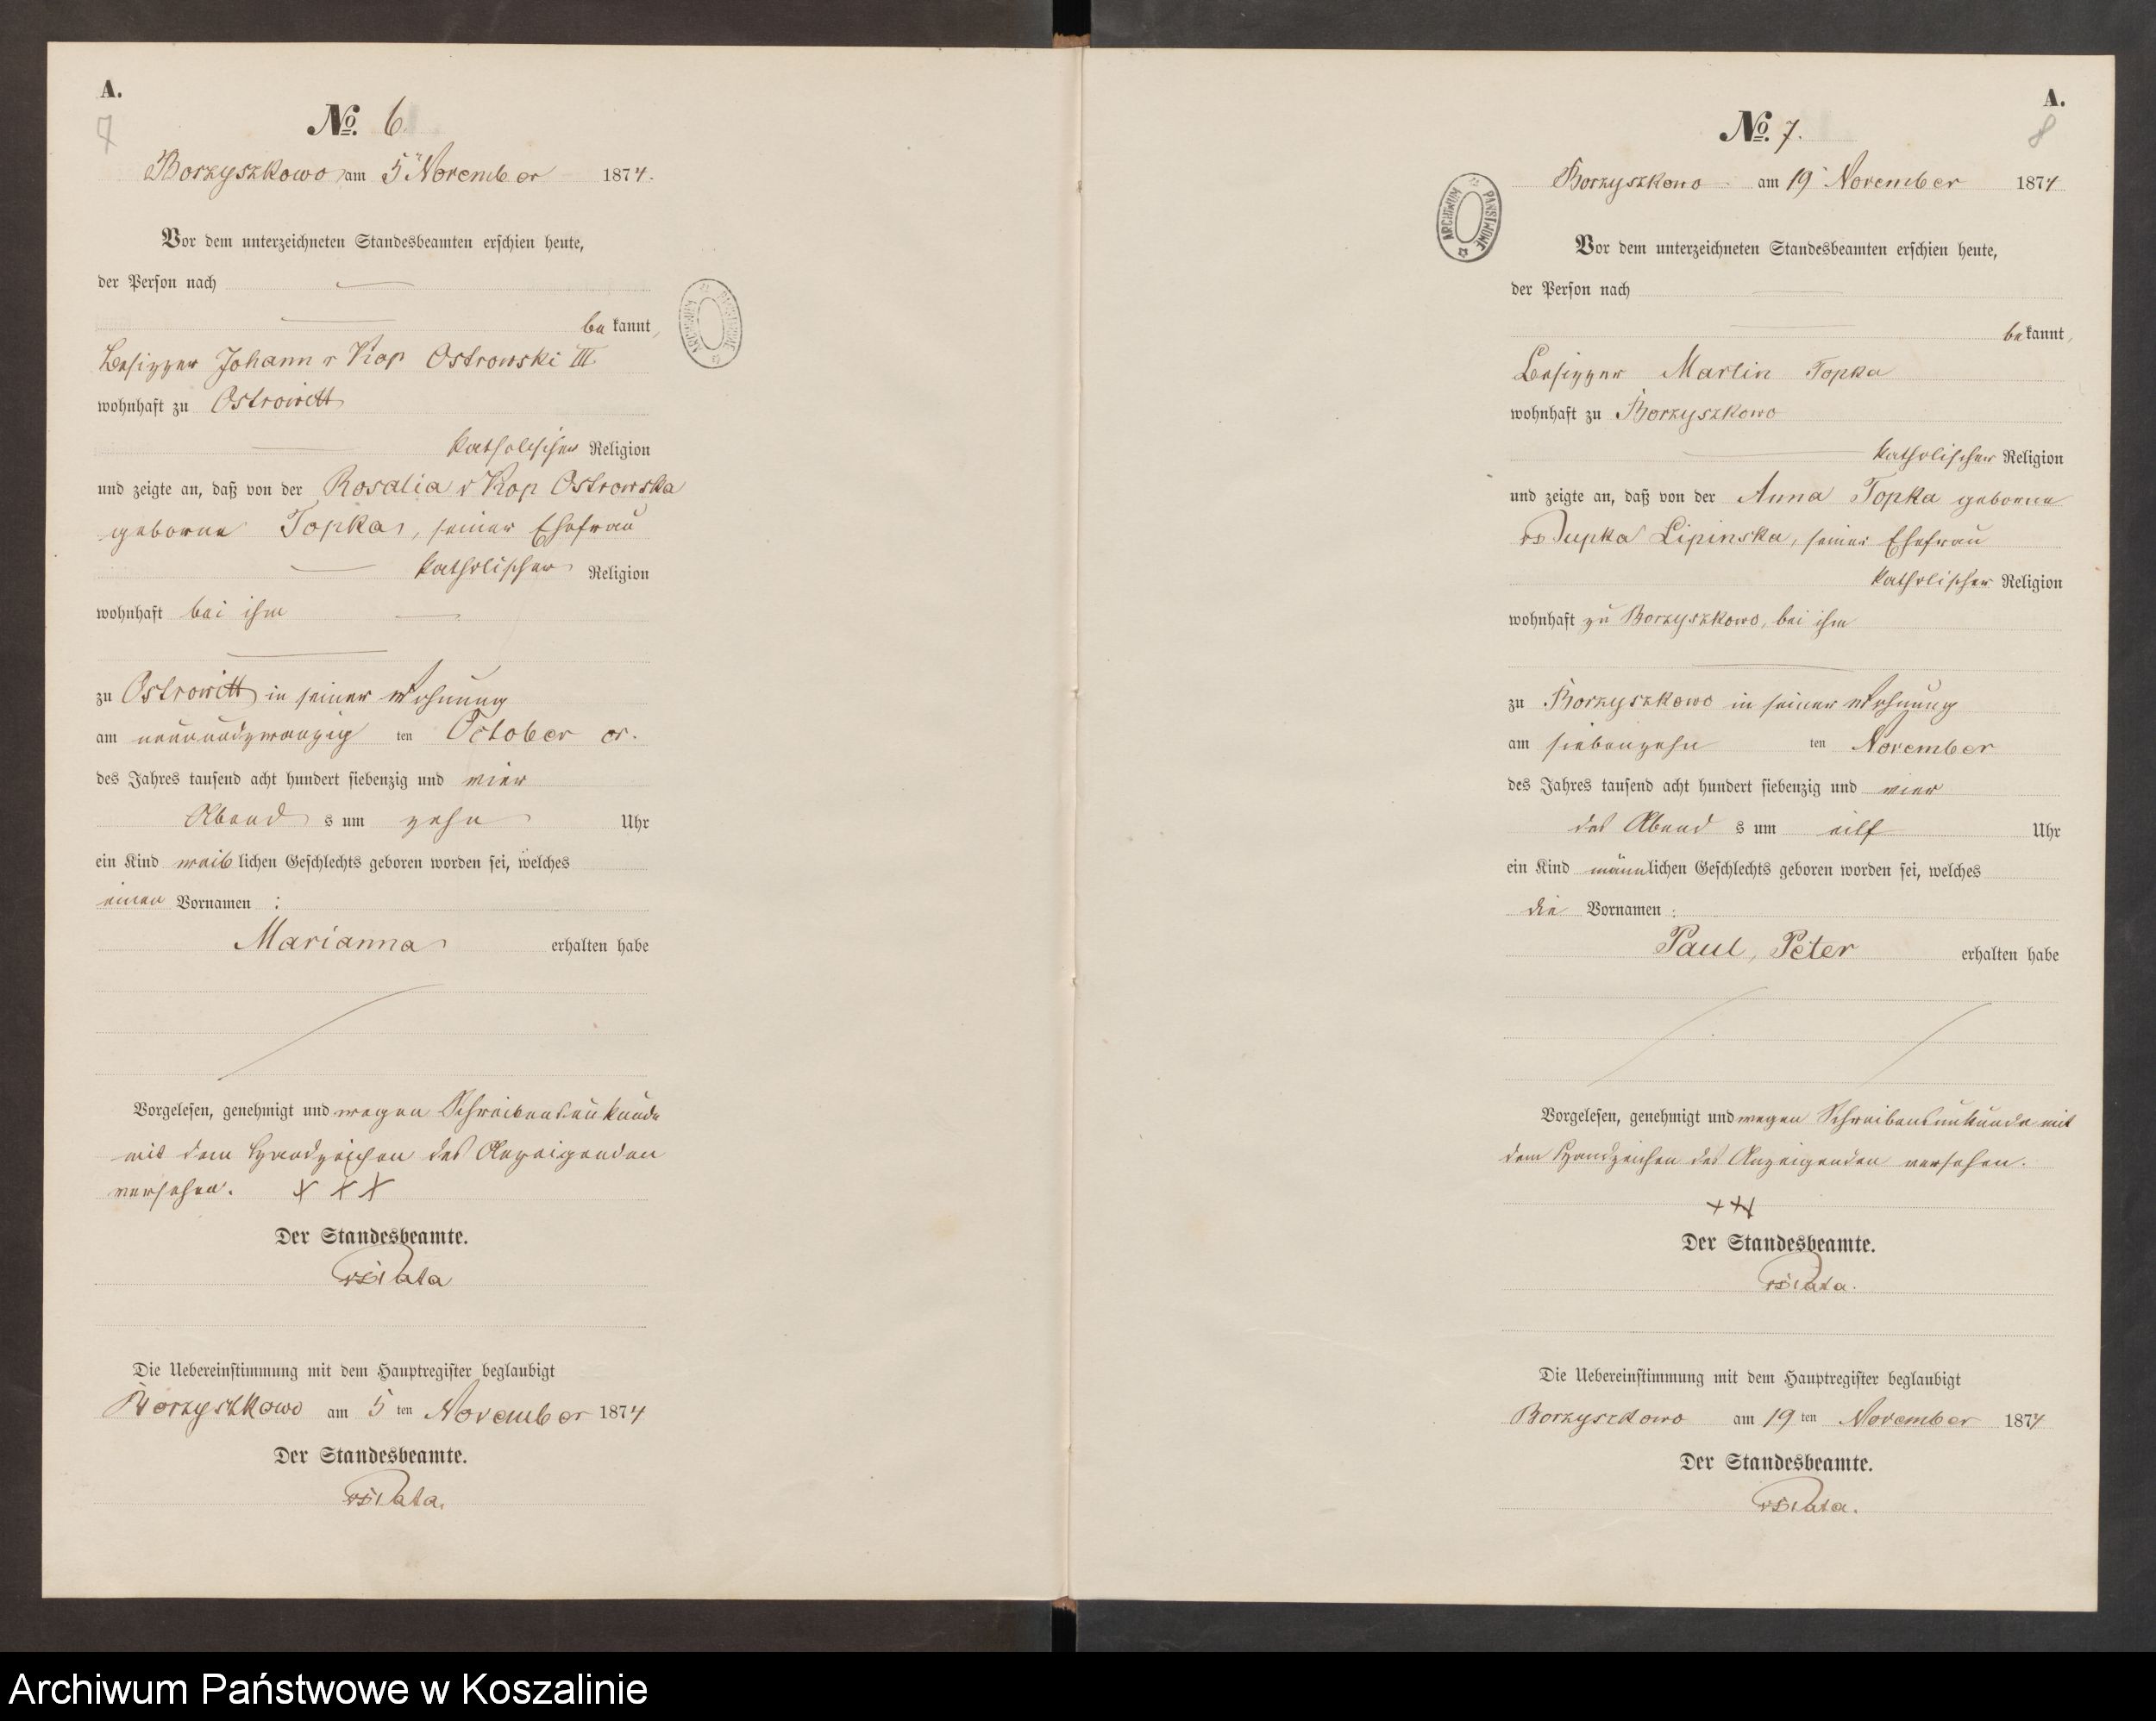 A.
7
No. 6.
Borzyszkowo am 5 November 1874.
Vor dem unterzeichneten Standesbeamten erschien heute,
der Person nach
bekannt,
Besitzer Johann v Kop Ostrowski III.
wohnhaft zu Ostrowitt
katholischer Religion
und zeigte an, daß von der Rosalia v Kop Ostrowska
geborne Topka, seiner Ehefrau
katholischer Religion
wohnhaft bei ihm
zu Ostrowitt in seiner Wohnung
am neunundzwanzig ten October cr.
des Jahres tausend acht hundert siebenzig und vier
Abend s um zehn Uhr
ein Kind weiblichen Geschlechts geboren worden sei, welches
einen Vornamen :
Marianna erhalten habe
Vorgelesen, genehmigt und wegen Schreibensunkunde
mit dem Handzeichen des Anzeigenden
versehen. X X X
Der Standesbeamte.
Die Uebereinstimmung mit dem Hauptregister beglaubigt
Borzyszkowo am 5 ten November 1874
Der Standesbeamte.
ARCHIWUM PAŃSTWOWE
A.
8
No. 7.
Borzyszkowo am 19 November 1874
Vor dem unterzeichneten Standesbeamten erschien heute,
der Person nach
bekannt,
Besitzer Martin Topka
wohnhaft zu Borzyszkowo
katholischer Religion
und zeigte an, daß von der Anna Topka geborne
Lipinska, seiner Ehefrau
katholischer Religion
wohnhaft zu Borzyszkowo, bei ihm
zu Borzyszkowo in seiner Wohnung
am siebenzehn ten November
des Jahres tausend acht hundert siebenzig und vier
des Abend s um eilf Uhr
ein Kind männlichen Geschlechts geboren worden sei, welches
die Vornamen :
Paul, Peter erhalten habe
Vorgelesen, genehmigt und wegen Schreibensunkunde mit
dem Handzeichen des Anzeigenden versehen.
XXX
Der Standesbeamte.
Die Uebereinstimmung mit dem Hauptregister beglaubigt
Borzyszkowo am 19 ten November 1874
Der Standesbeamte.
ARCHIWUM PAŃSTWOWE
Archiwum Państwowe w Koszalinie